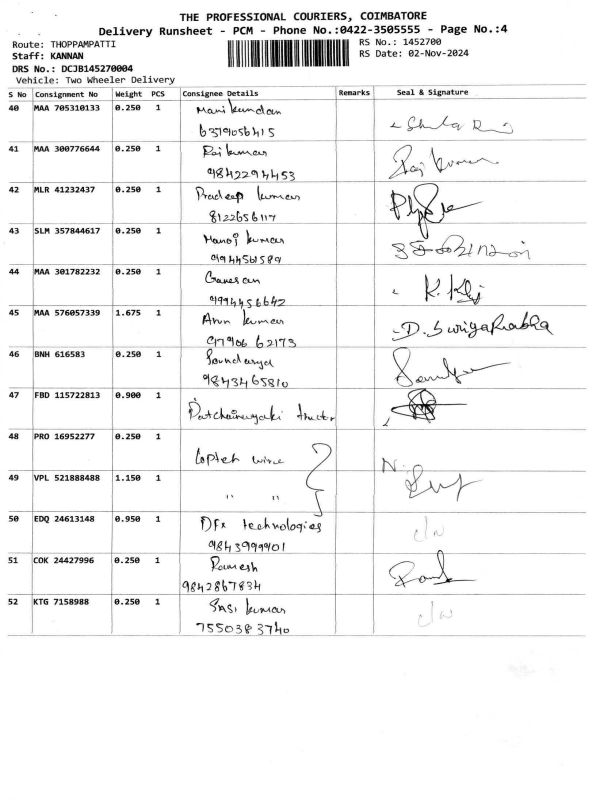 THE PROFESSIONAL COURIERS, COIMBATORE
Delivery Runsheet - PCM - Phone No.:0422-3505555 - Page No.:4
Route: THOPPAMPATTI RS No.: 1452700
Staff: KANNAN RS Date: 02-Nov-2024
DRS No.: DCJB145270004
Vehicle: Two Wheeler Delivery
S No Consignment No Weight PCS Consignee Details Remarks Seal & Signature
40 MAA 705310133 0.250 1 Manikandan
6379056415
41 MAA 300776644 0.250 1 Rajkumar Raj kumar
9842294453
42 MLR 41232437 0.250 1 Pradeep kumar
8122656117
43 SLM 357844617 0.250 1 Manoj kumar
9944561589
44 MAA 301782232 0.250 1 Ganesan
9994456642
45 MAA 576057339 1.675 1 Arun kumar D. Suriya Prabha
97906 62173
46 BNH 616583 0.250 1 Soundarya
9843465810
47 FBD 115722813 0.900 1 Patchainayaki
48 PRO 16952277 0.250 1
49 VPL 521888488 1.150 1 " "
50 EDQ 24613148 0.950 1 DFx technologies
9843999901
51 COK 24427996 0.250 1 Ramesh
9842867834
52 KTG 7158988 0.250 1 Sasi kumar
7550383740